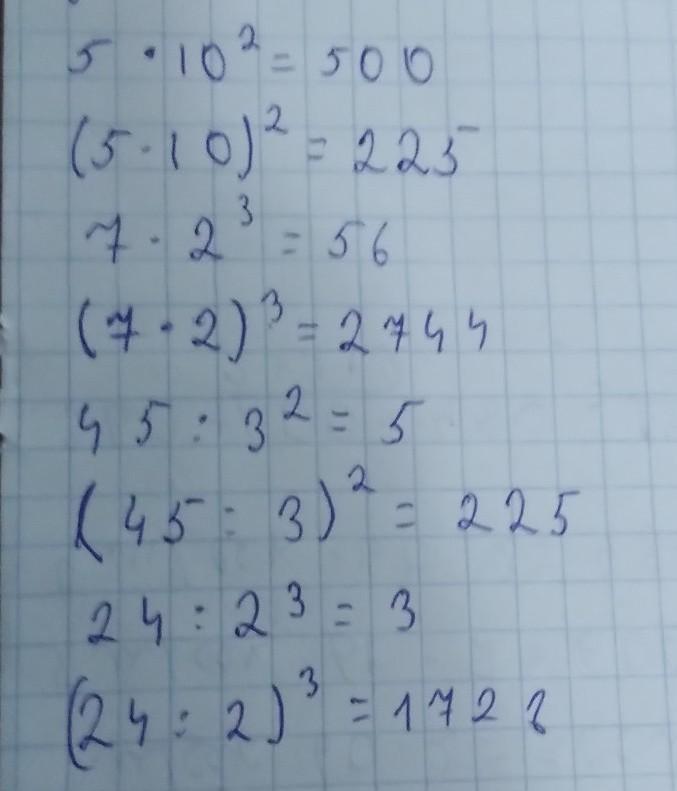 5 · 10² = 500
(5 · 10)² = 225
7 · 2³ = 56
(7 · 2)³ = 2744
45 : 3² = 5
(45 : 3)² = 225
24 : 2³ = 3
(24 : 2)³ = 1728